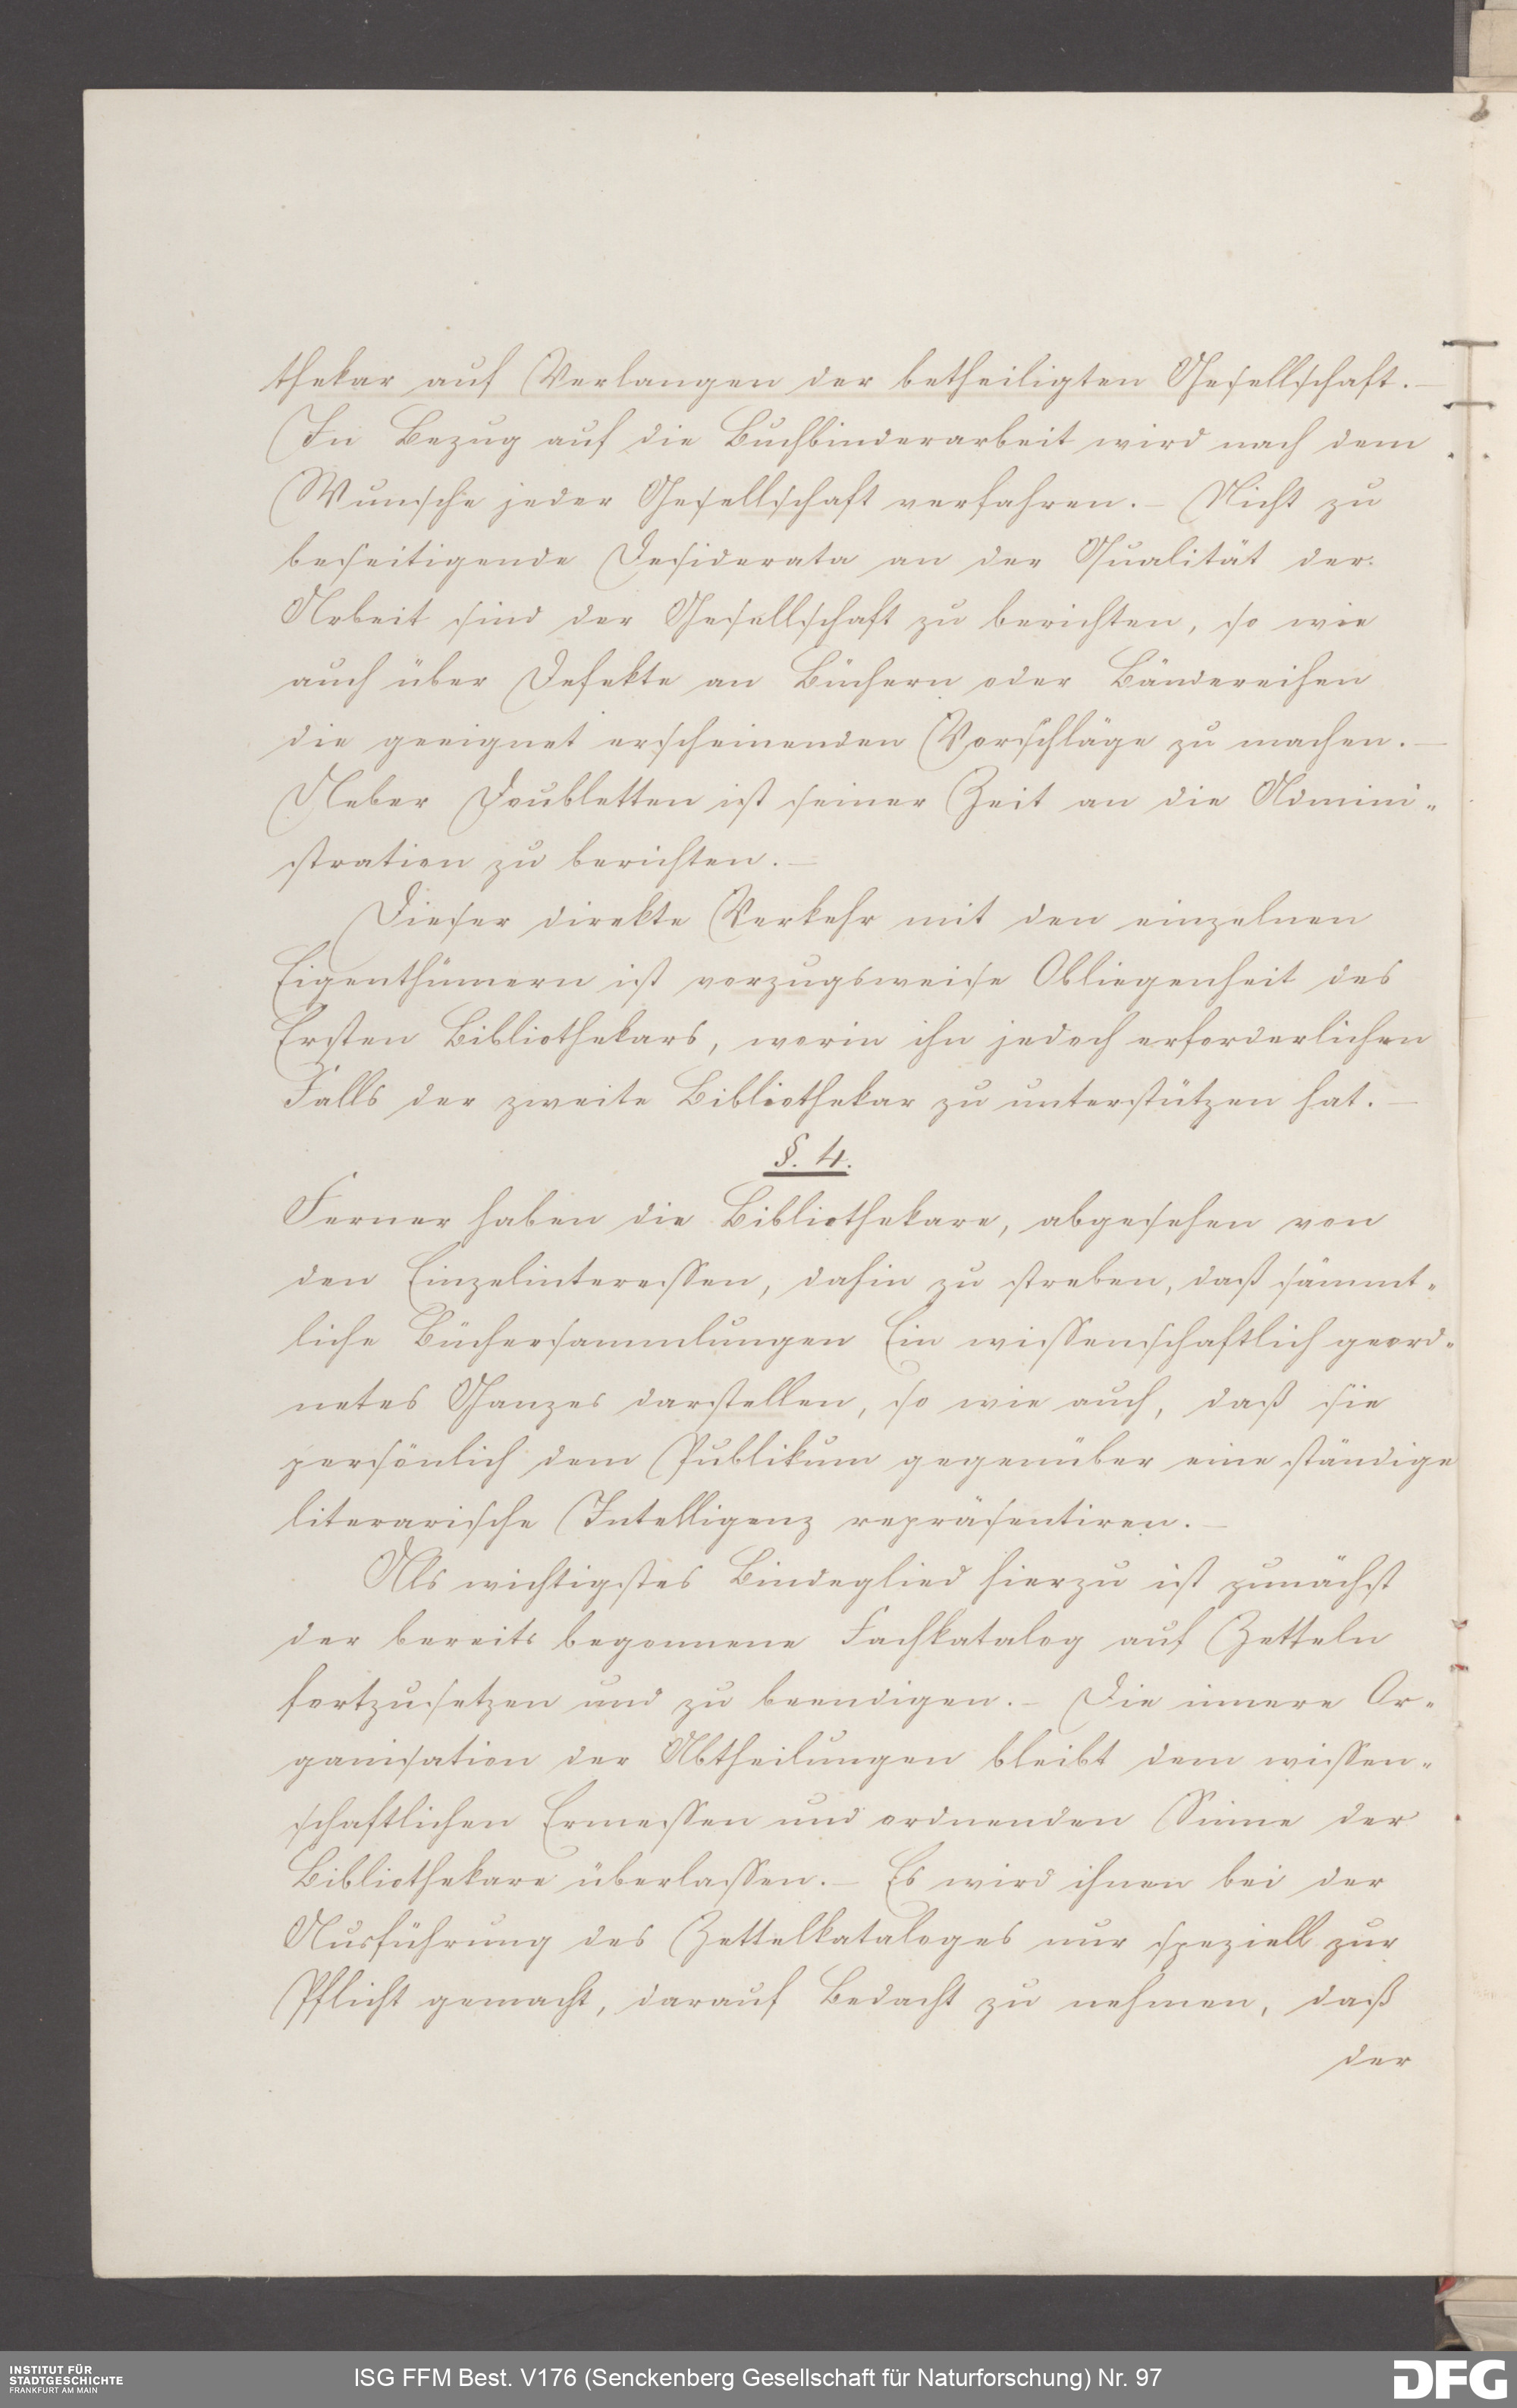 thekar auf Verlangen der betheiligten Gesellschaft. –
In Bezug auf die Buchbinderarbeit wird nach dem
Wunsche jeder Gesellschaft verfahren. – Nicht zu
beseitigende Desiderata an der Qualität der
Arbeit sind der Gesellschaft zu berichten, so wie
auch über Defekte an Büchern oder Bändereihen
die geeignet erscheinenden Vorschläge zu machen. –
Ueber Doubletten ist seiner Zeit an die Admini-
stration zu berichten. –
Dieser direkte Verkehr mit den einzelnen
Eigenthümern ist vorzugsweise Obliegenheit des
Ersten Bibliothekars, worin ihn jedoch erforderlichen
Falls der zweite Bibliothekar zu unterstützen hat. –
§. 4.
Ferner haben die Bibliothekare, abgesehen von
den Einzelinteressen, dahin zu streben, daß sämmt-
liche Büchersammlungen Ein wissenschaftlich geord-
netes Ganzes darstellen, so wie auch, daß sie
persönlich dem Publikum gegenüber eine ständige
literarische Intelligenz repräsentiren. –
Als wichtigstes Bindeglied hierzu ist zunächst
der bereits begonnene Fachkatalog auf Zetteln
fortzusetzen und zu beendigen. – Die innere Or-
ganisation der Abtheilungen bleibt dem wissen-
schaftlichen Ermessen und ordnenden Sinne der
Bibliothekare überlassen. – Es wird ihnen bei der
Ausführung des Zettelkataloges nur speziell zur
Pflicht gemacht, darauf Bedacht zu nehmen, daß
der
INSTITUT FÜR
STADTGESCHICHTE
FRANKFURT AM MAIN
ISG FFM Best. V176 (Senckenberg Gesellschaft für Naturforschung) Nr. 97
DFG